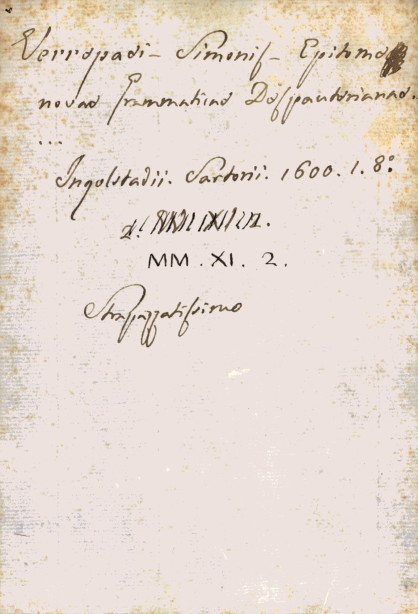 Verropadi - Simonis - Epitome
novae Grammaticae Despauterianae.
...
Ingolstadii. Sartorii. 1600. 1. 8.º
MM. XI. 2.
Strapazzatissimo